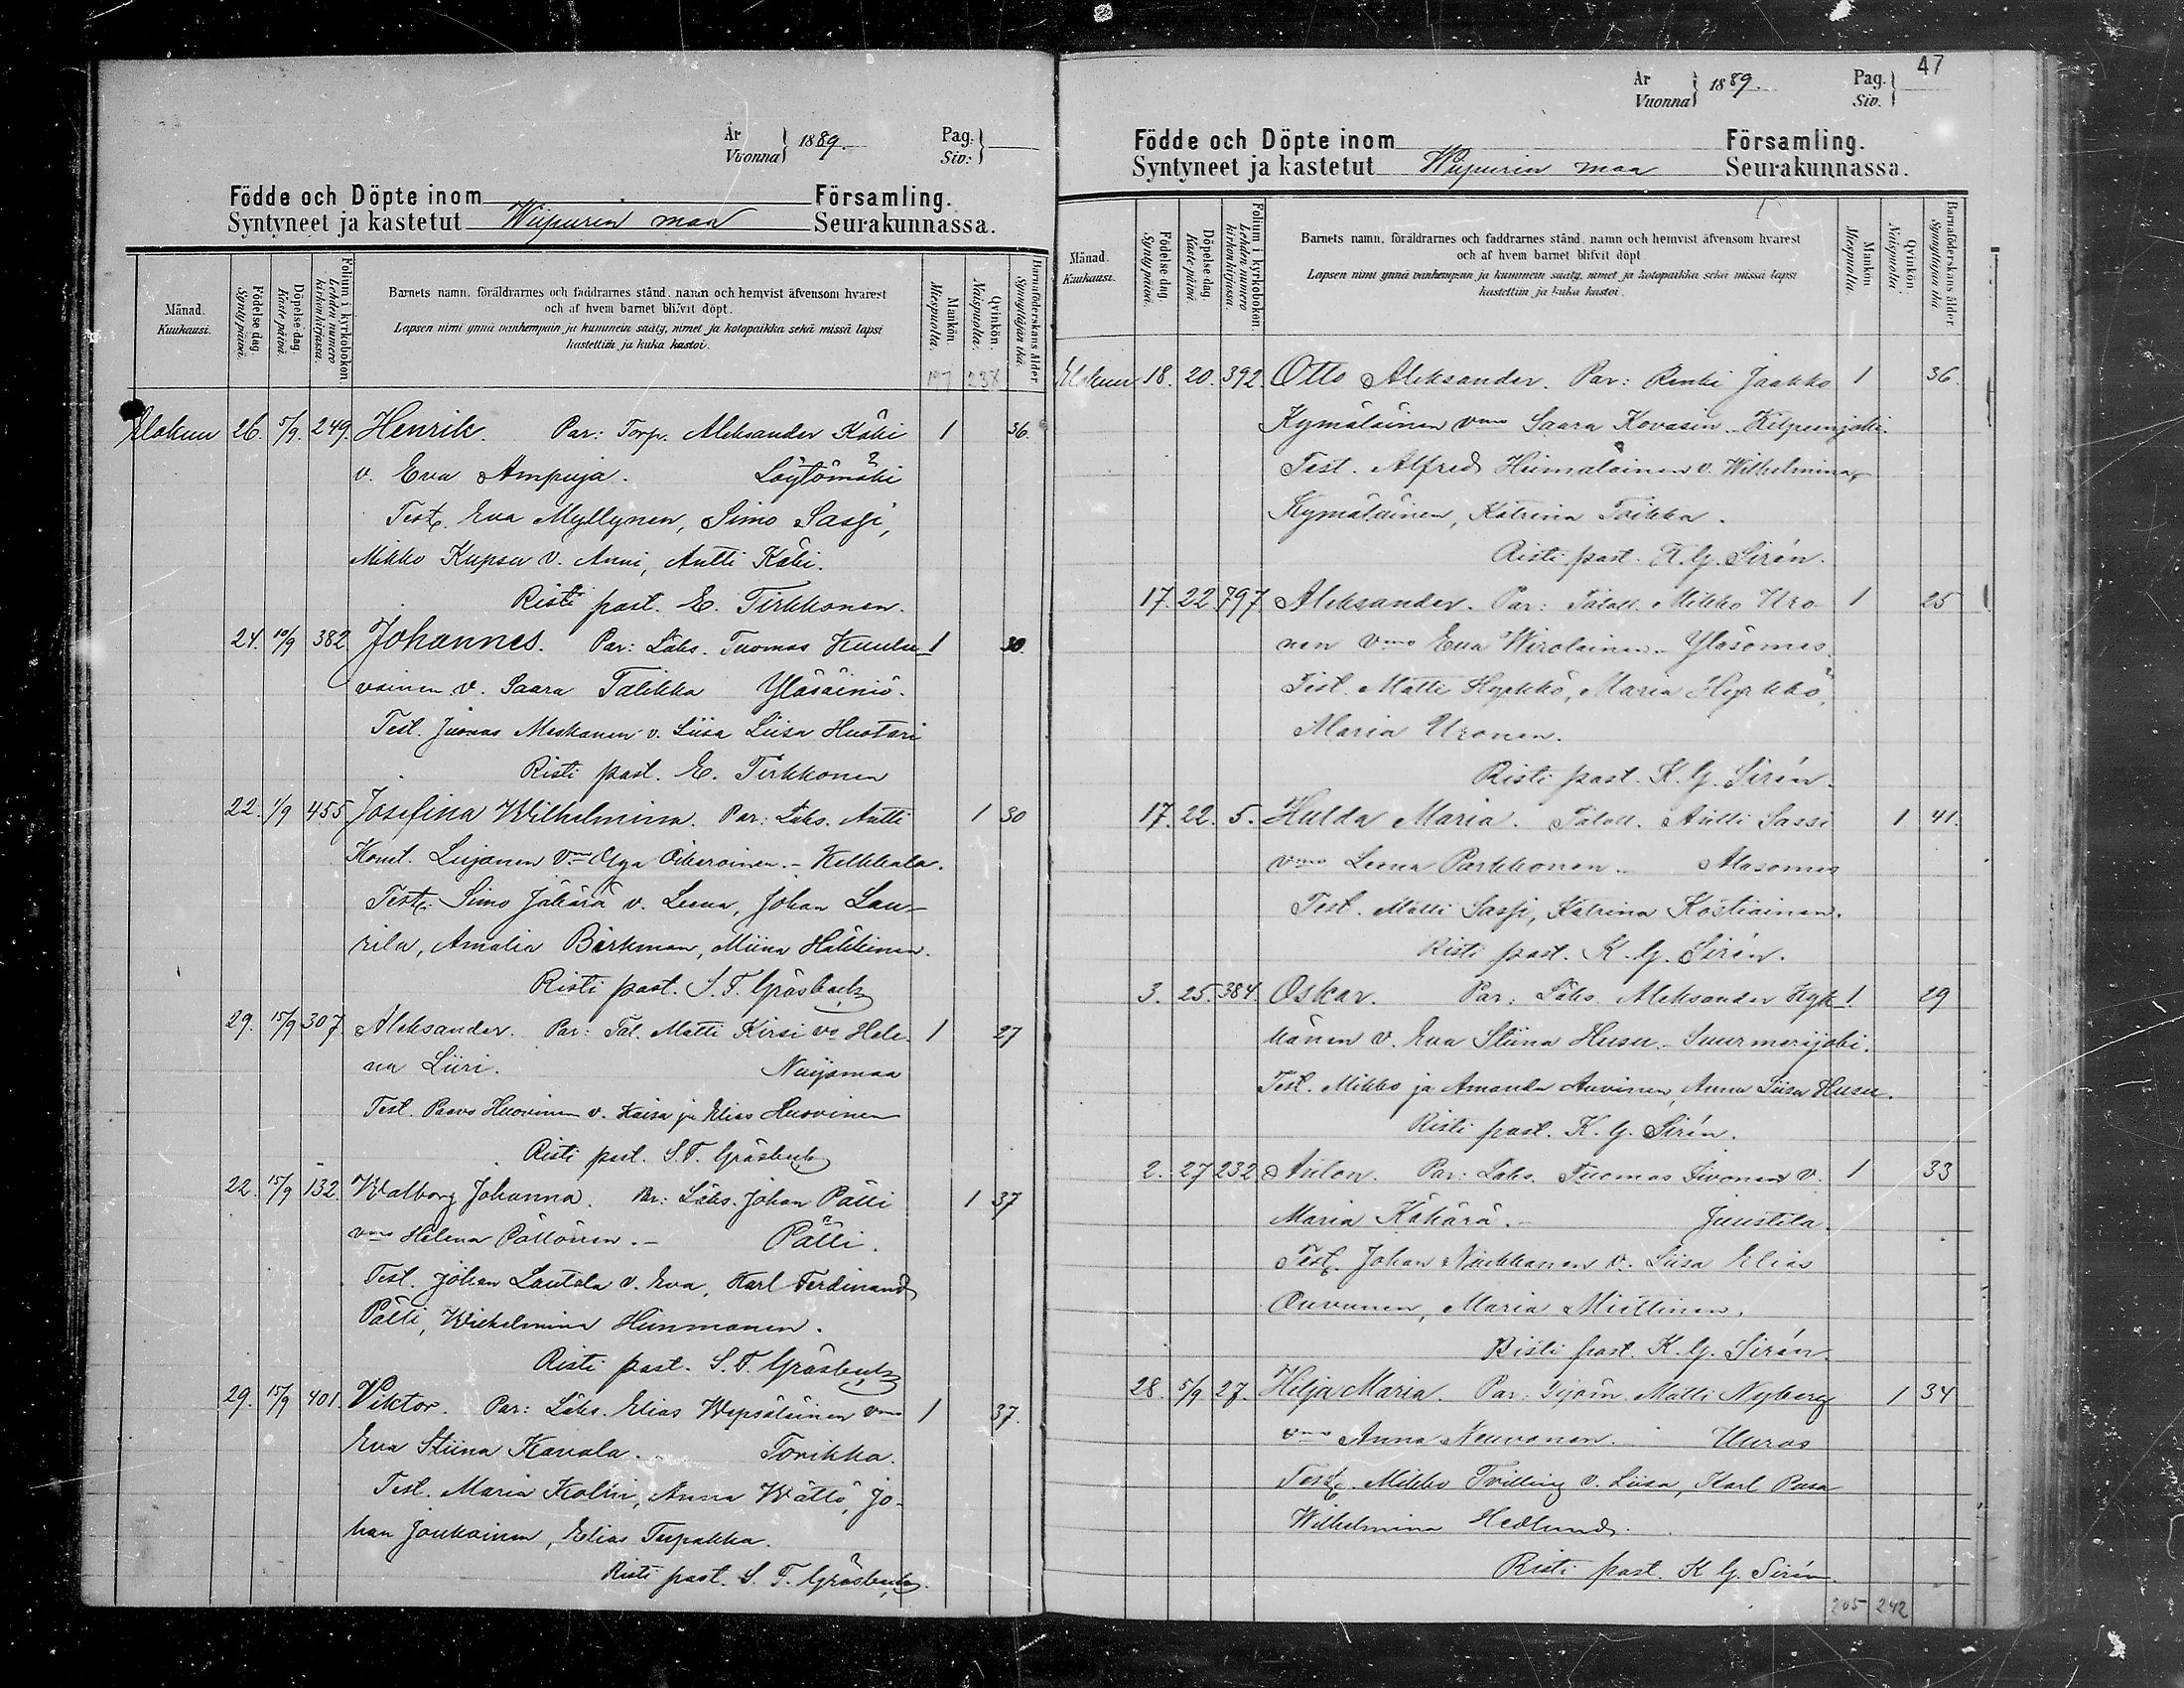 År
Vuonna } 1889.
Pag.
Siv: }
Födde och Döpte inom Församling.
Syntyneet ja kastetut Wiipurin maa Seurakunnassa.
Månad.
Kuukausi.
Födelse-dag.
Synty päivä.
Döpelse-dag.
Kaste päivä.
Folium i kyrkoboken.
Lehden numero kirkonkirjassa.
Barnets namn, föräldrarnes och faddrarnes stånd, namn och hemvist äfvensom hvarest
och af hvem barnet blifvit döpt.
Lapsen nimi ynnä vanhempain ja kummein sääty, nimet ja kotopaikka sekä missä lapsi
kastettiin ja kuka kastoi.
Mankön.
Miespuolia.
Qvinkön.
Naispuolia.
Barnaföderskans ålder.
Synnyttäjän ikä.
197 238
Elokuu 26. 5/9. 249. Henrik. Par: Torp. Aleksander Käki 1 36.
v. Eva Ampuja. Löytömäki
Test. Eva Myllynen, Simo Sassi,
Mikko Kupsu v. Anni, Antti Käki.
Risti past. E. Tirkkonen.
24. 10/9 382 Johannes. Par: Läks. Tuomas Kuulu- 1 30.
vainen v. Saara Talikka Yläsäiniö.
Test. Juonas Meskanen v. Liisa Liisa Huotari
Risti past. E. Tirkkonen
22. 1/9 455 Josefina Wilhelmina. Par: Läks. Antti 1 30
Konst. Lujanen vmo Olga Oikeroinen. - Kelkkala.
Test. Simo Jähärä v. Leena, Johan Lau-
rila, Amalia Björkman, Miina Häkkinen.
Risti past. S. T. Gräsbeck
29. 15/9 307. Aleksander. Par: Tal. Matti Kirsi vo Hele- 1 27
na Liiri. Nuijamaa
Test. Paavo Huovinen v. Kaisa ja Elias Huovinen
Risti past. S. T. Gräsbeck
22. 15/9 132. Walborg Johanna. Par: Läks. Johan Pälli 1 37
vmo Helena Pöllönen. - Pälli.
Test. Johan Lautala v. Eva, Karl Ferdinand
Pälli, Wilhelmina Hinmonen.
Risti past. S. T. Gräsbeck
29. 15/9 401. Viktor. Par: Läks. Elias Wepsäläinen vmo 1 37.
Eva Stiina Kavala. Torikka.
Test. Maria Kolin, Anna Wättö, Jo-
han Joukainen, Elias Tupakka.
Risti past. S. T. Gräsbeck.
47
År
Vuonna } 1889.
Pag.
Siv. }
Födde och Döpte inom Församling.
Syntyneet ja kastetut Wiipurin maa Seurakunnassa.
Månad.
Kuukausi.
Födelse-dag.
Syntypäivä.
Döpelse-dag.
Kaste päivä.
Folium i kyrkoboken.
Lehden numero kirkonkirjassa.
Barnets namn, föräldrarnes och faddrarnes stånd, namn och hemvist äfvensom hvarest
och af hvem barnet blifvit döpt.
Lapsen nimi ynnä vanhempain ja kummein sääty, nimet ja kotopaikka sekä missä lapsi
kastettiin ja kuka kastoi.
Mankön.
Miespuolia.
Qvinkön.
Naispuolia.
Barnaföderskans ålder.
Synnyttäjän ikä.
Elokuu 18. 20. 392. Otto Aleksander. Par: Renki Jaakko 1 36.
Kymäläinen vmo Saara Kovasin. Kilpeenjoki.
Test. Alfred Hiimäläinen v. Wilhelmina
Kymäläinen, Katrina Toikka.
Risti past. K. G. Sirén.
17. 22. 797 Aleksander. Par: Taloll. Mikko Uro- 1 25
nen vmo Eva Wirolainen. Yläsomes.
Test. Matti Hyrkkö, Maria Hyrkkö,
Maria Uronen.
Risti past. K. G. Sirén.
17. 22. 5. Hulda Maria. Taloll. Antti Sassi 1 41.
vmo Leena Parkkonen. Alasomes
Test. Matti Sassi, Katrina Kostiainen.
Risti past. K. G. Sirén.
3. 25. 384. Oskar. Par: Läks. Aleksander Hyk- 1. 29
känen v. Eva Stiina Husu. Suurmerijoki.
Test. Mikko ja Amanda Auvinen, Anna Liisa Husu.
Risti past. K. G. Sirén.
2. 27 232 Anton. Par: Läks. Tuomas Sivonen v. 1 33
Maria Kähärä. - Juustila.
Test. Johan Naikkanen v. Liisa Elias
Ouvunen, Maria Miettinen.
Risti past. K. G. Sirén.
28. 5/9 27. Hilja Maria. Par: Työm. Matti Nyberg 1 34
vmo Anna Neuvonen. Uuras
Test. Mikko Tvilling v. Liisa, Karl Pusa
Wilhelmina Hedlund.
Risti past. K. G. Sirén.
205 242